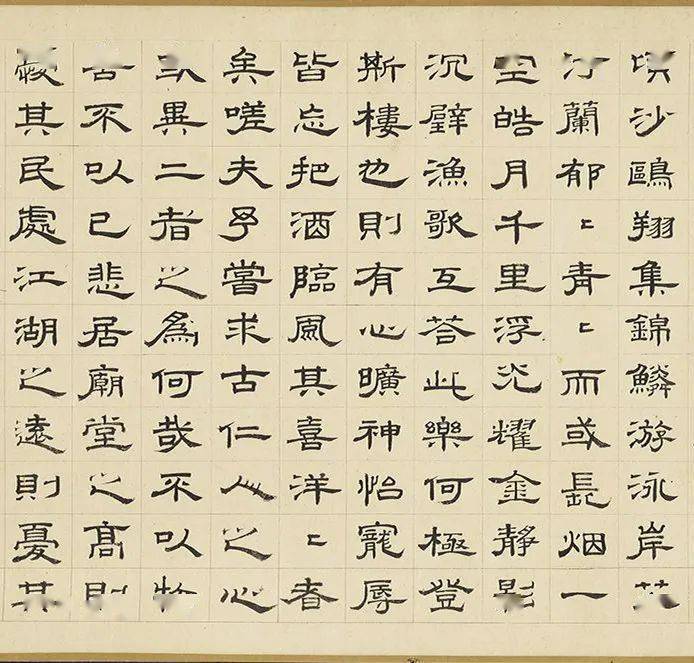 頃沙鷗翔集錦鱗游泳岸芷
汀蘭郁〻青〻而或長烟一
空皓月千里浮光耀金靜影
沉璧漁歌互荅此樂何極登
斯樓也則有心曠神怡寵辱
皆忘把酒臨風其喜洋〻者
矣嗟夫予嘗求古仁人之心
或異二者之為何哉不以物
喜不以己悲居廟堂之高則
其民處江湖之遠則憂其